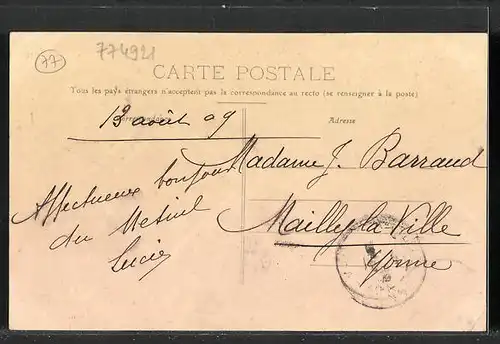 77
774921
CARTE POSTALE
Tous les pays étrangers n'acceptent pas la correspondance au recto (se renseigner à la poste)
Correspondance
Adresse
13 août 09
Madame J. Barraud
Mailly-la-Ville
Yonne
Affectueux bonjour
du Mesnil
Lucie